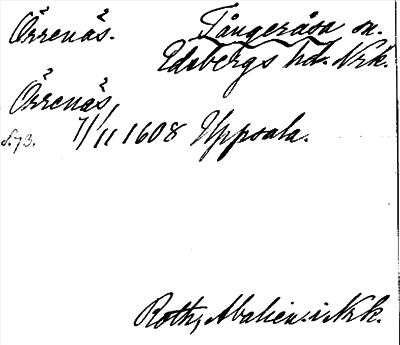 Örrenäs. Tångeråsa sn.
Edsbergs hd. Nrk.
Örrenäs,
s.73. 7/11 1608 Uppsala.
Roth, Abalien. i Nrk.